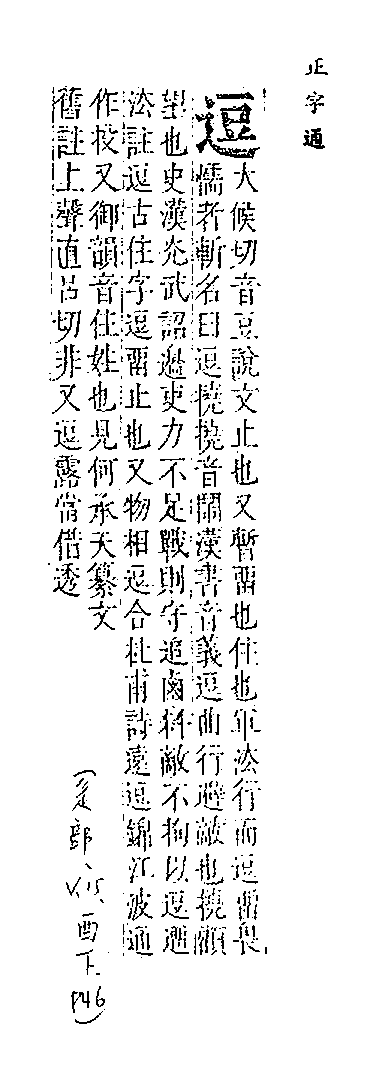 正字通
逗
大候切音豆說文止也又暫畱也住也軍法行而逗畱畏
懦者斬名曰逗撓撓音鬧漢書音義逗曲行避敵也撓顧
望也史漢光武詔邊吏力不足戰則守追鹵料敵不拘以逗遛
法註逗古住字逗畱止也又物相逗合杜甫詩遠逗錦江波通
作投又御韻音住姓也見何承天纂文
舊註上聲直呂切非又逗露當借透
(辵部、V15 酉下 P46)